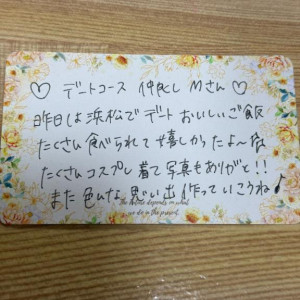 ♡ デートコース 仲良し Mさん ♡
昨日は浜松でデートおいしいご飯
たくさん食べられて嬉しかったよ〜
たくさんコスプレ着て写真もありがと!!
また色んな思い出作っていこうね♪
The future depends on what
we do in the present.